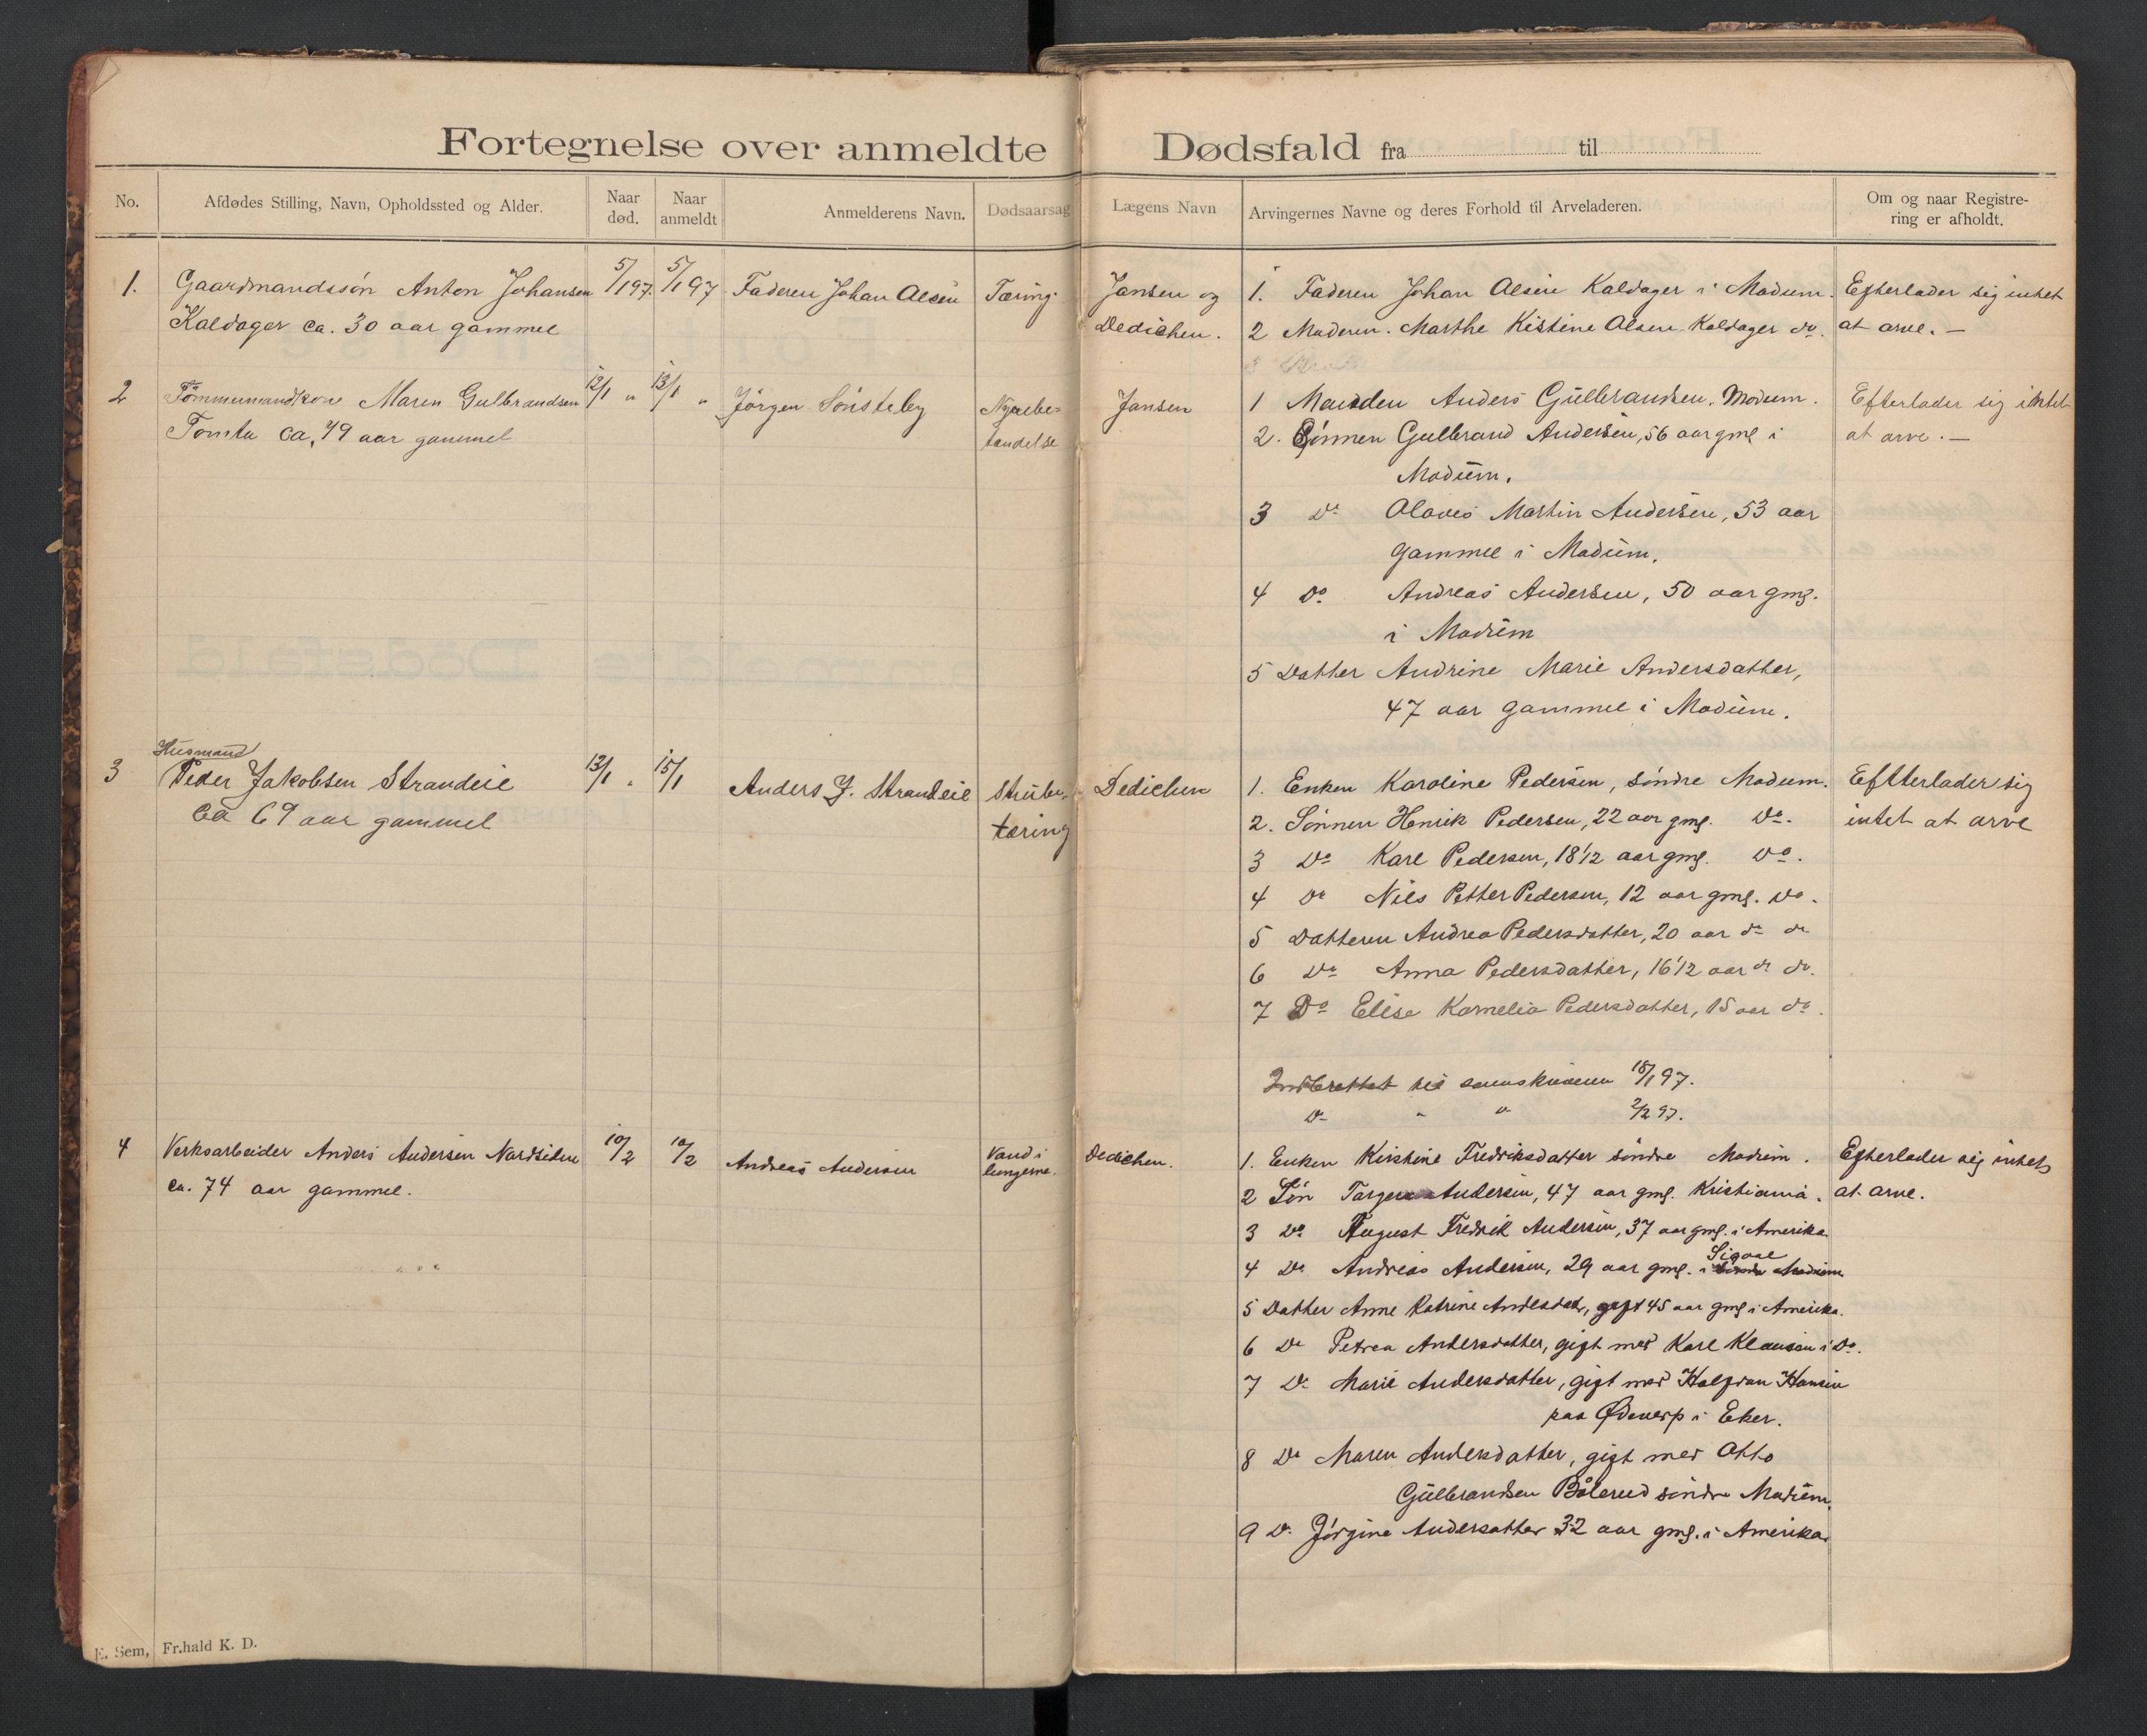 Fortegnelse over anmeldte Dødsfald fra til
No.
Afdødes Stilling, Navn, Opholdssted og Alder.
Naar død.
Naar anmeldt
Anmelderens Navn.
Dødsaarsag
Lægens Navn
Arvingernes Navne og deres Forhold til Arveladeren.
Om og naar Registre-
ring er afholdt.
1. Gaardmandssön Anton Johansen 5/1 97. 5/1 97 Faderen Johan Olsen Tæring. Jansen og 1. Faderen Johan Olsen Kaldager i Modum. Efterlader sig intet
Kaldager ca. 30 aar gammel Dedichen. 2 Moderen. Marthe Kistine Olsen Kaldager do. at arve. —
2 Tömmermandkone Maren Gulbrandsen 12/1 " 13/1 " Jörgen Sönsteby Nyrebe= Jansen 1 Manden Anders Gulbrandsen. Modum. Efterlader sig intet
Tomta ca. 79 aar gammel tendelse 2. Sönnen Gulbrand Andersen, 56 aar gml i at arve. —
Modum.
3 Do Olaves Martin Andersen, 53 aar
gammel i Modum.
4 Do. Andreas Andersen, 50 aar gmg.
i Modum
5 Datter Andrine Marie Andersdatter,
47 aar gammel i Modum.
Husmand
3 Peder Jakobsen Strandeie 13/1 " 15/1 Anders J. Strandeie Strube- Dedichen 1. Enken Karoline Pedersen, söndre Modum. Eftterlader sig
Ca 69 aar gammel tæring 2. Sönnen Henrik Pedersen, 22 aar gmg. Do. intet at arve
3 Do Karl Pedersen, 18 1/2 aar gmg. Do.
4 Do Nils Petter Pedersen, 12 aar gmg. Do.
5 Datteren Andrea Pedersdatter, 20 aar do do
6 Do Anna Pedersdatter, 16 1/2 aar do do.
7 Do Elise Kornelia Pedersdatter, 15 aar do.
Indberettet til sorenskriveren 18/1 97.
Do " " 2/2 97.
4 Verksarbeider Anders Andersen Nordsiden 10/2 10/2 Andreas Andersen Vand i Dedichen. 1. Enken Kirstine Fredriksdatter söndre Modum. Efterlader sig intet
ca. 74 aar gammel. lungerne. 2 Sön Torger Andersen, 47 aar gmg. Kristiania. at arve.
3 Do August Fredrik Andersen, 37 aar gmg. i Amerika.
Sigdal
4 Do Andreas Andersen, 29 aar gmg. i söndre Modum
5 Datter Anne Katrine Andersdatr, gift 45 aar gmg i Amerika.
6 Do Petrea Andersdatter, gift med Karl Klausen i Do.
7 Do Marie Andersdatter, gift med Halfdan Hansen
paa Ödenerp i Eker.
8 Do Maren Andersdatter, gift med Otto
Gulbrandsen Bålerud söndre Modum.
9 Do. Jörgine Andersatter 32 aar gmg. i Amerika
E. Sem, Fr.hald K. D.